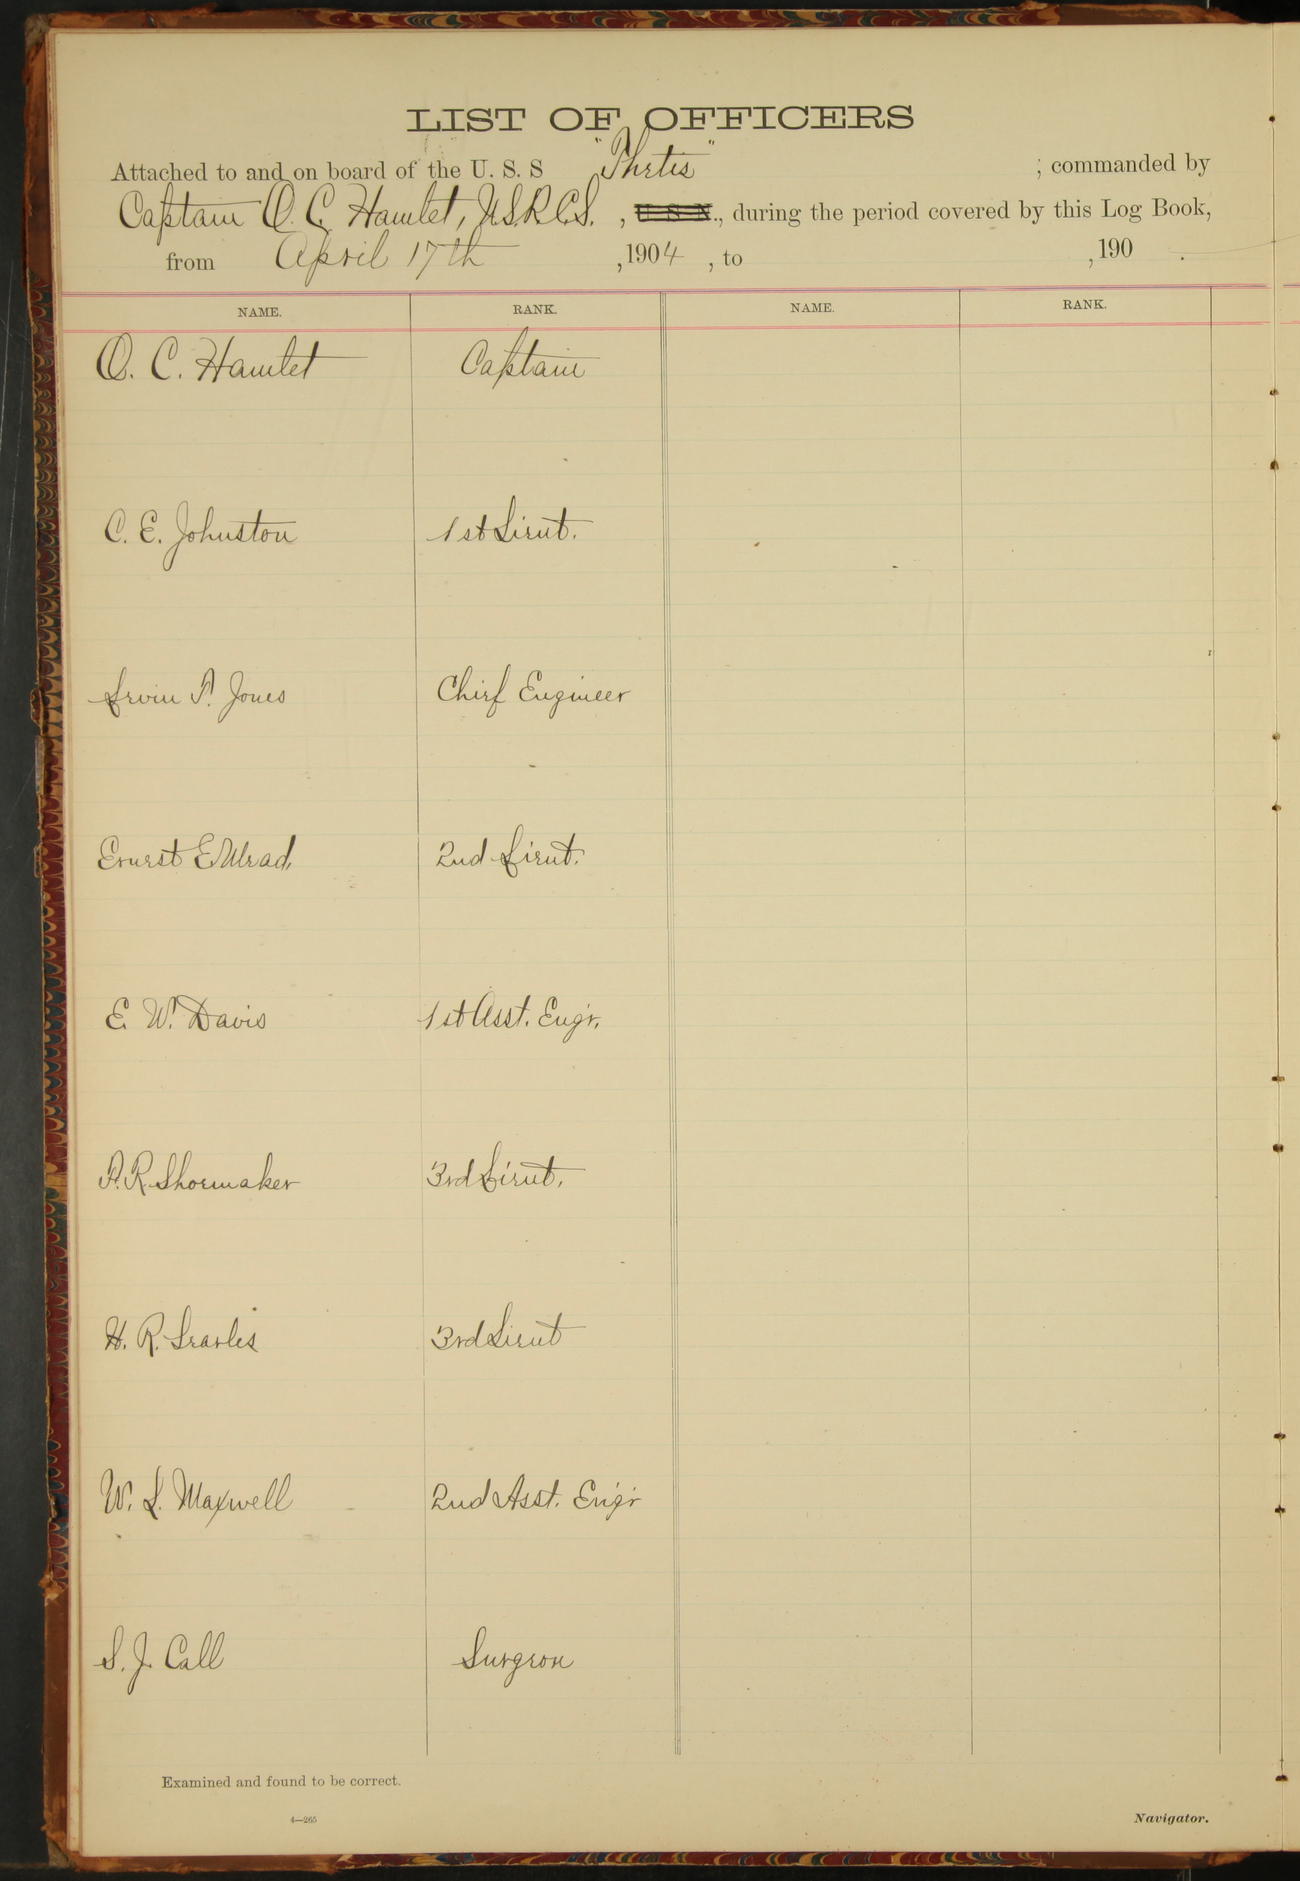 LIST OF OFFICERS
Attached to and on board of the U. S. S "Thetis" ; commanded by
Captain O. C. Hamlet, U.S.R.C.S. , U S N., during the period covered by this Log Book,
from April 17th , 1904 , to , 190 .
NAME. RANK. NAME. RANK.
O. C. Hamlet Captain
C. E. Johnston 1st Lieut.
Chief Engineer
Ernest E. Mead, 2nd Lieut.
E. W. Davis 1st Asst. Engr.
F. R. Shoemaker 3rd Lieut.
H. R. Searles 3rd Lieut
W. L. Maxwell 2nd Asst. Eng'r
S. J. Call Surgeon
Examined and found to be correct.
4—265
Navigator.